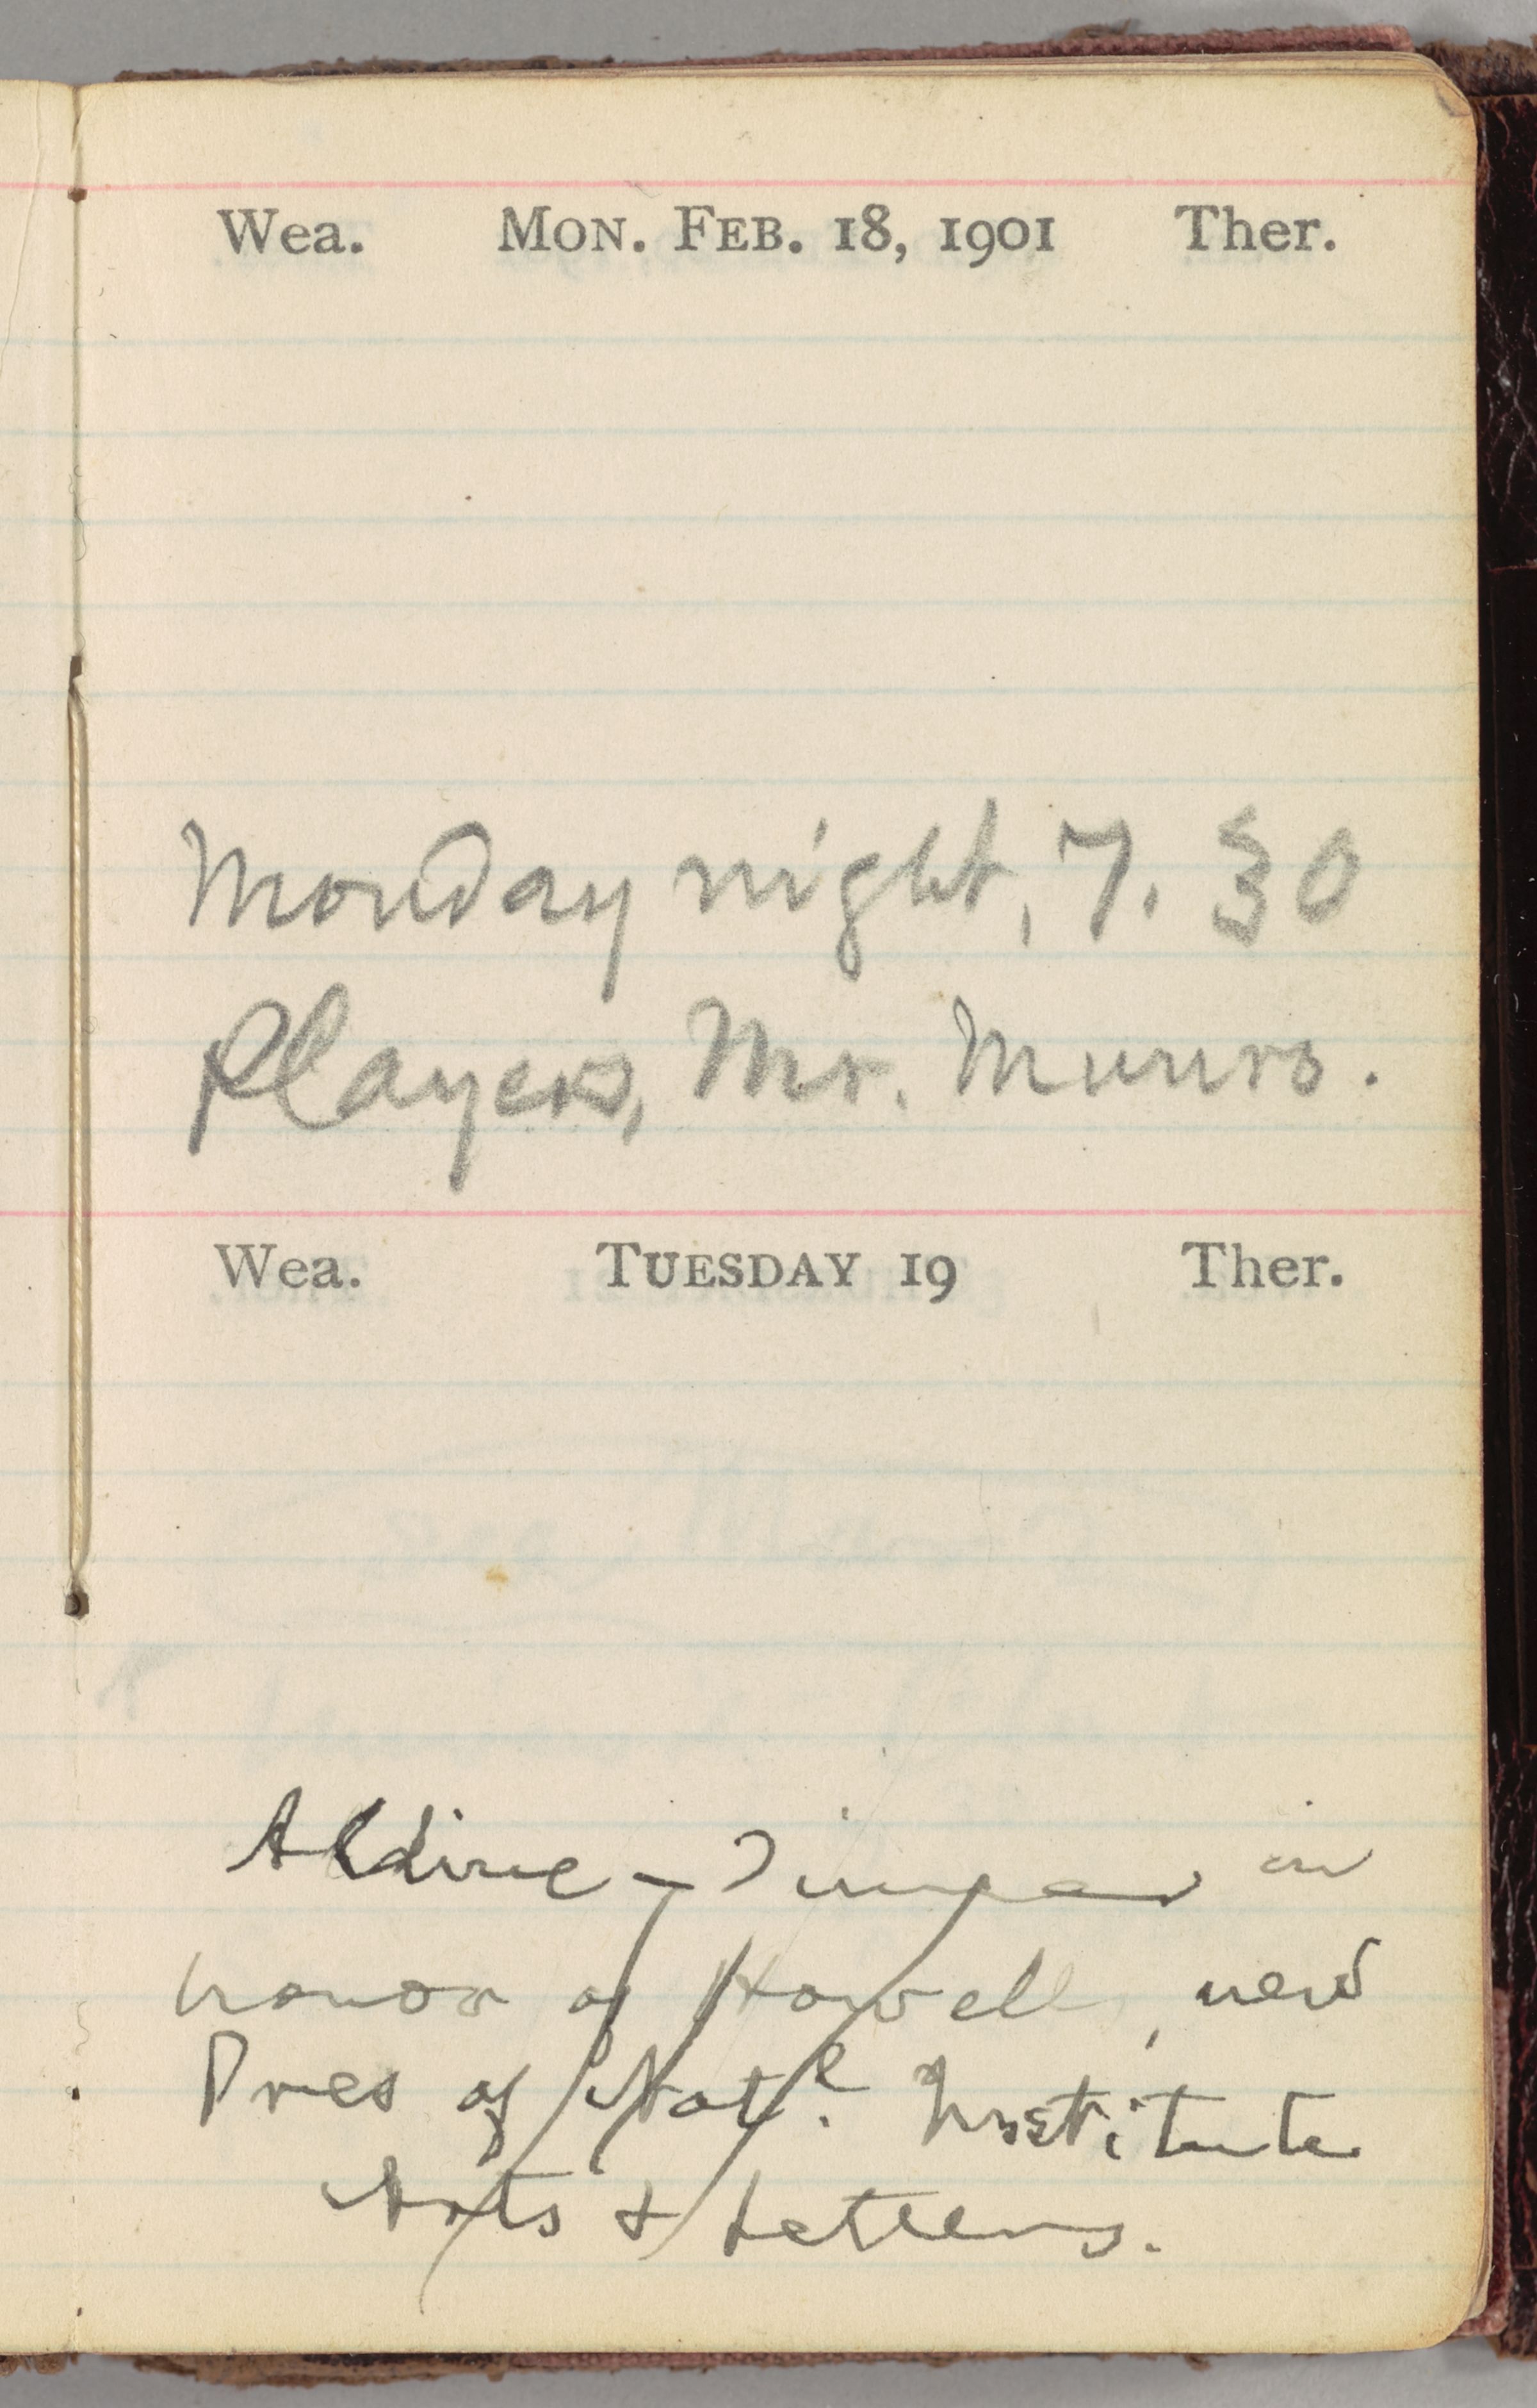 Wea. Mon. Feb. 18, 1901 Ther.
Monday night, 7. 30
Players, Mr. Munro.
Wea. Tuesday 19 Ther.
Aldine – Dinner in
honor of Howells, new
Pres of Natl. Institute
Arts & Letters.